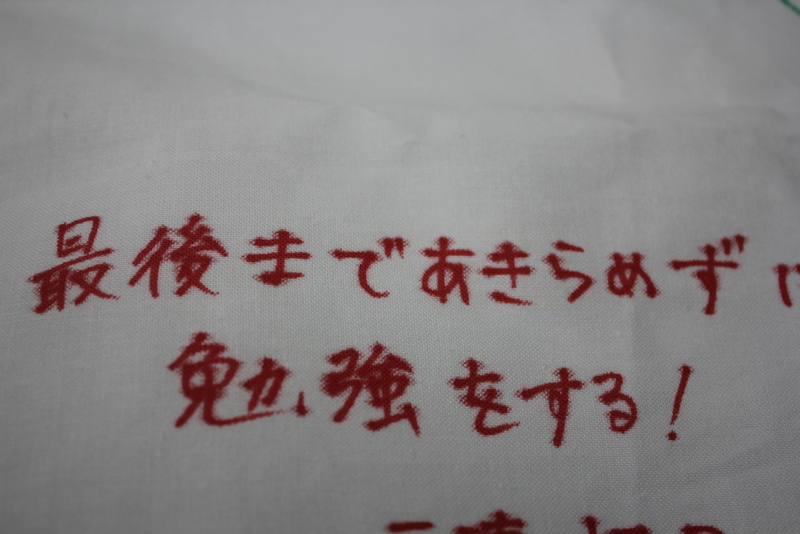 最後まであきらめずに
勉強をする!